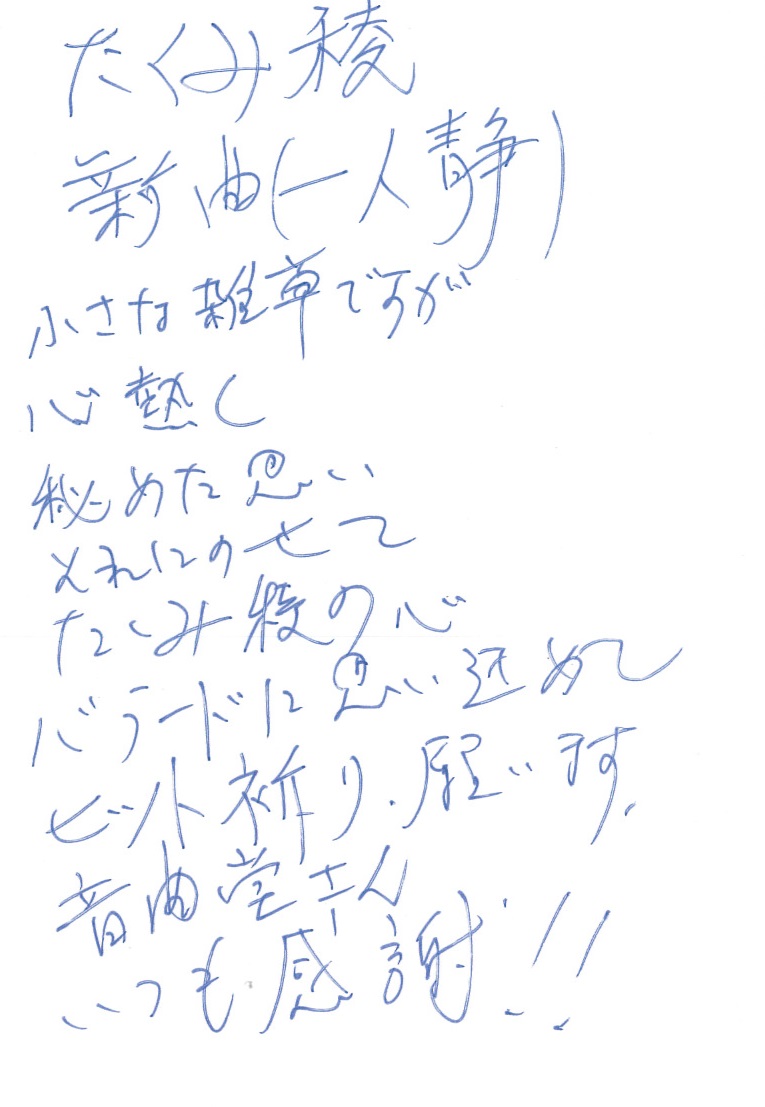 たくみ稜
新曲(一人静)
小さな雑草ですが
心熱く
秘めた思い
それにのせて
たくみ稜の心
バラードに思い込めて
ヒット祈り、願います。
音曲堂さん
いつも感謝!!